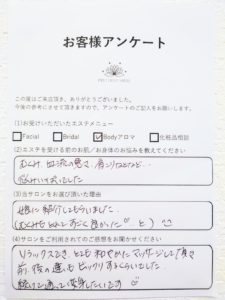 お客様アンケート
この度はご来店頂き、ありがとうございました。
今後の参考にさせて頂きますので、アンケートのご記入をお願いします。
(1)お受けいただいたエステメニュー
Facial Bridal Bodyアロマ 化粧品相談
(2)エステを受ける前のお肌／お身体のお悩みを教えてください
むくみ 血流の悪さ、肩こりなどなど…
悩みいっぱいでした
(3)当サロンをお選び頂いた理由
娘に紹介してもらいました
(むくみもとれてすごく良かった と)
(4)サロンをご利用されてのご感想をお聞かせください
リラックスでき、とても わマッサージして頂き
前、後の違いも ビックリするくらいでした
続けて通って 変身したいです